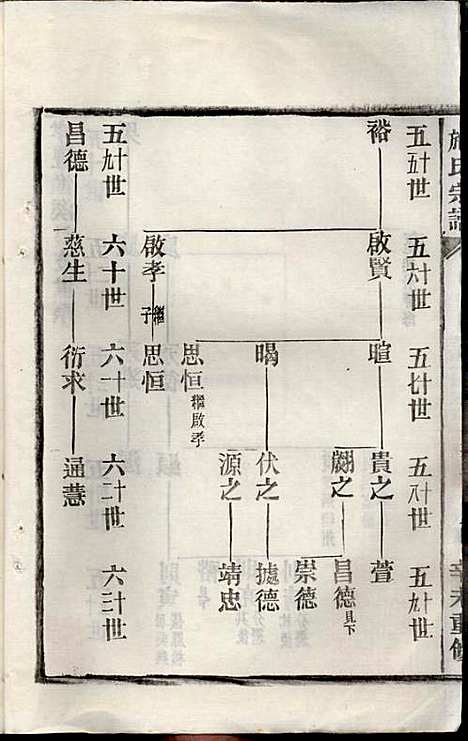 施氏宗譜
辛未重修
五十五世 五十六世 五十七世 五十八世 五十九世
裕 啟賢 暄 貴之 萱
翽之 昌德見下
崇德
暍 伏之 據德
源之 靖忠
思恒繼啟孝
啟孝 繼子 思恒
五十九世 六十世 六十一世 六十二世 六十三世
昌德 慈生 衍求 通慧